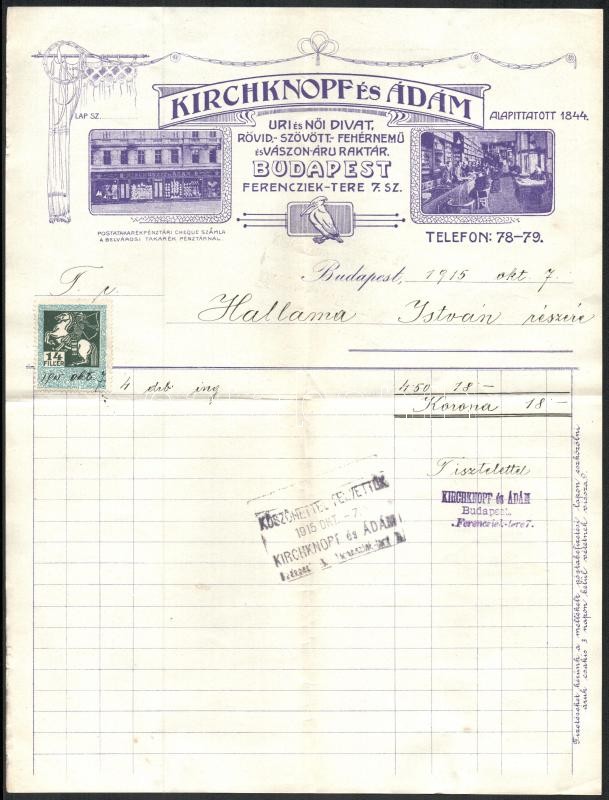 LAP SZ.
KIRCHKNOPF ÉS ÁDÁM
ALAPITTATOTT 1844.
URI ÉS NŐI DIVAT,
RÖVID,- SZÖVÖTT,- FEHÉRNEMŰ
ÉS VÁSZON-ÁRU RAKTÁR.
BUDAPEST
FERENCZIEK-TERE 7. SZ.
POSTATAKARÉKPÉNZTÁRI CHEQUE SZÁMLA
A BELVÁROSI TAKARÉK PÉNZTÁRNÁL.
TELEFON: 78-79.
Budapest, 1915 okt. 7.
T. c.
Hallama István részére
14
FILLÉR
1915 okt 7
4 drb ing 4.50 18 –
Korona 18 –
Tisztelettel
KIRCHKNOPF és ÁDÁM
Budapest.
Ferencziek-tere 7.
KÖSZÖNETTEL FELVETTÜK
1915 OKT. -7.
KIRCHKNOPF és ÁDÁM
Fizetéseket kérünk a mellékelt postabefizetési lapon eszközölni
áruk csakis 3 napon belül vétetnek vissza.